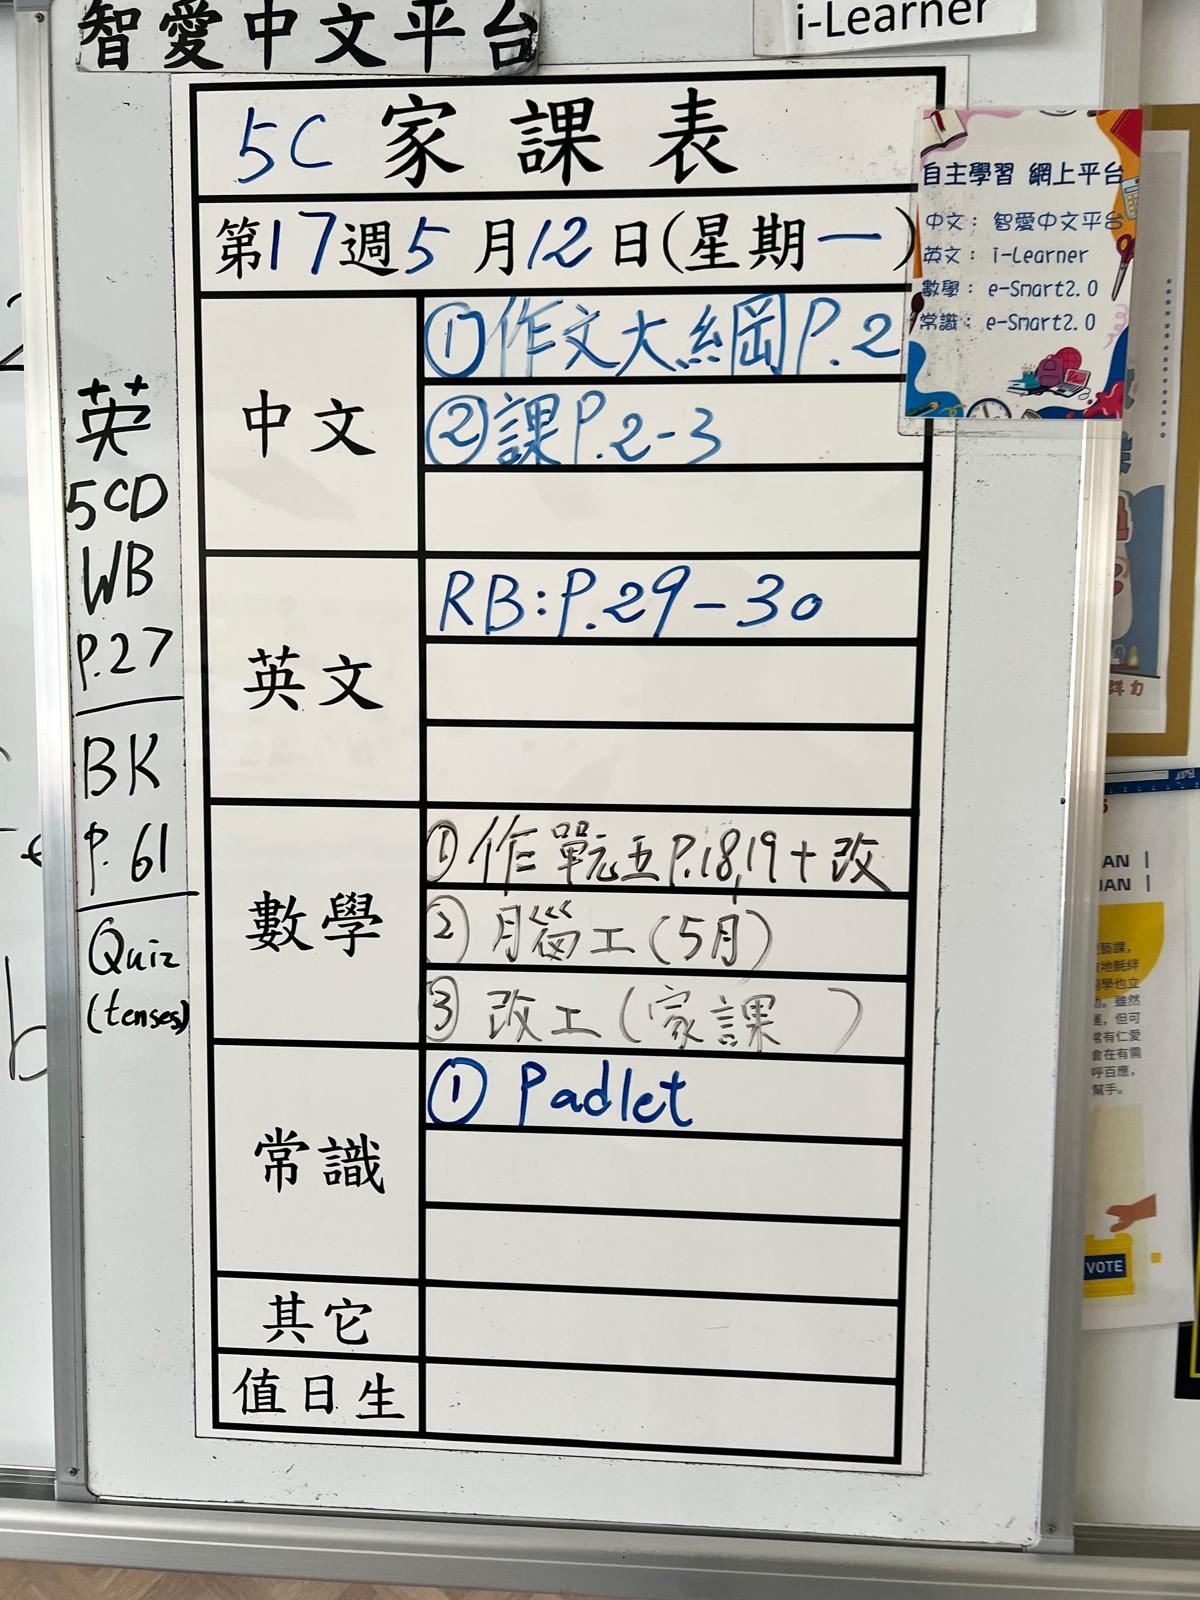 智愛中文平台
i-Learner
5C 家課表
第17週5月12日(星期一)
中文
①作文大綱P.2
②課P.2-3
英文
RB:P.29-30
數學
①作單元五P.18,19+改
②月腦工(5月)
③改工(家課 )
常識
① Padlet
其它
值日生
英
5CD
WB
P.27
BK
P.61
Quiz
(tenses)
自主學習 網上平台
中文: 智愛中文平台
英文: i-Learner
數學: e-Smart2.0
常識: e-Smart2.0
VOTE